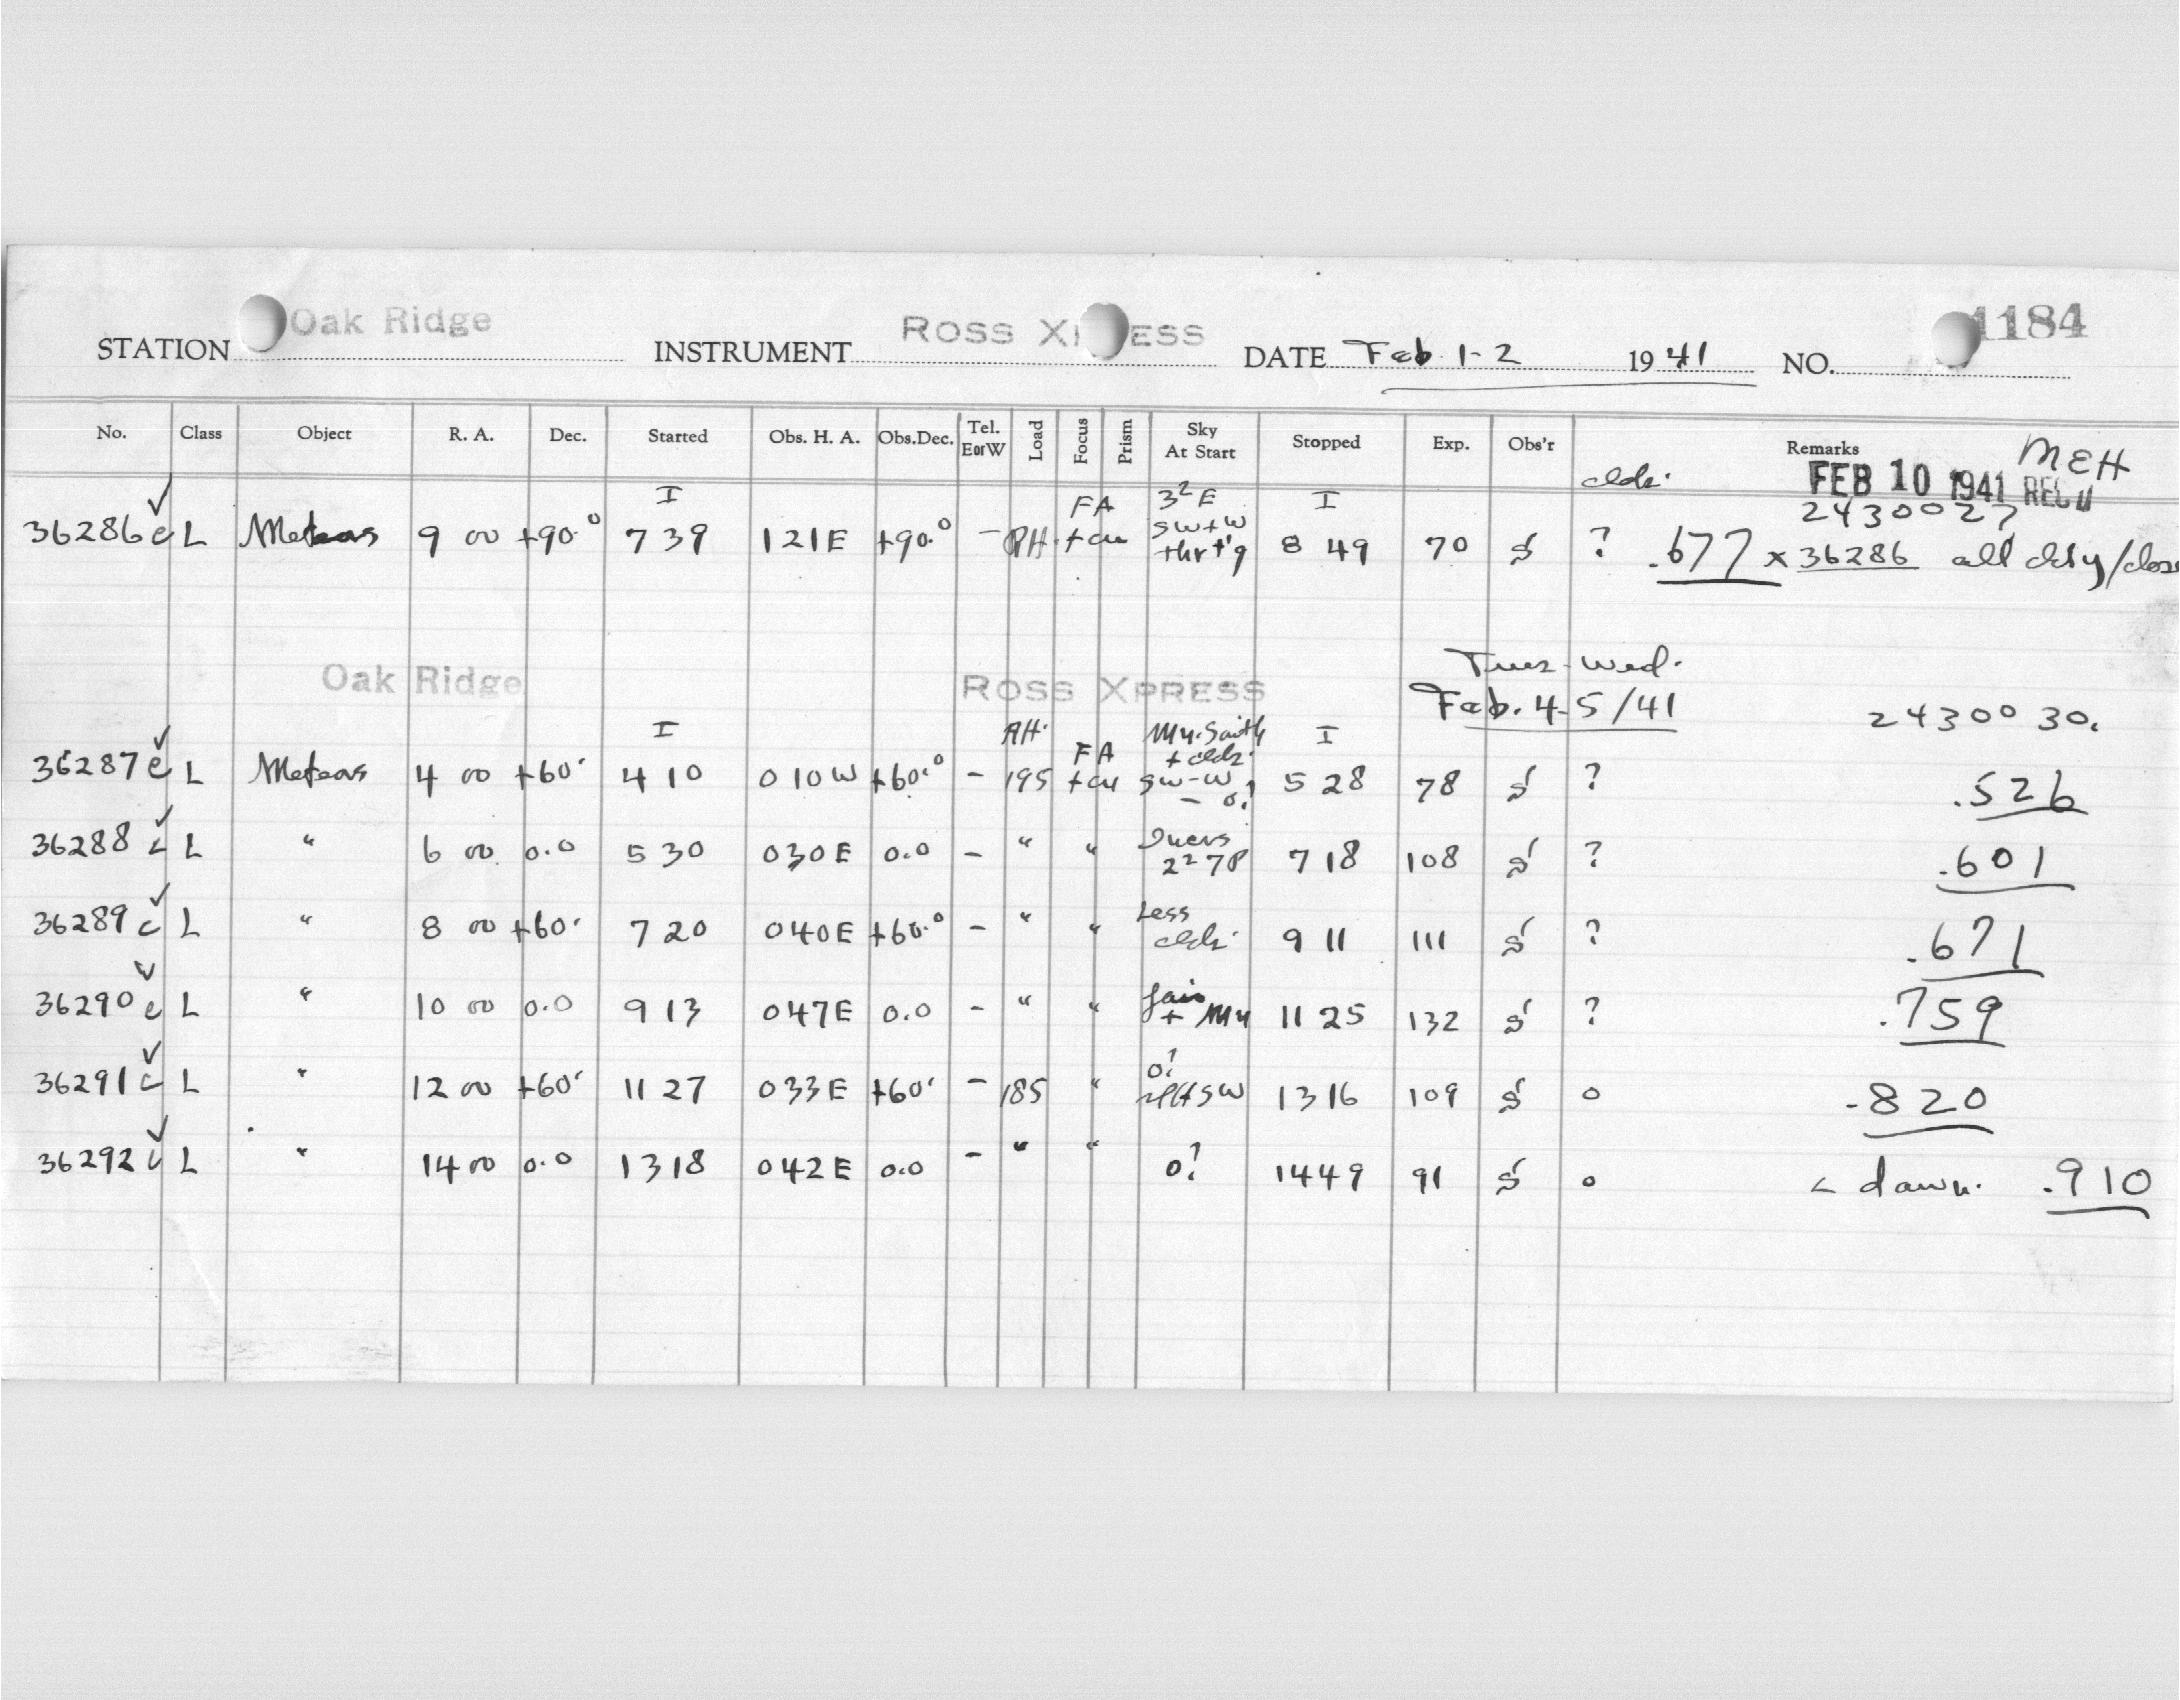 STATION Oak Ridge INSTRUMENT ROSS X ESS DATE Feb. 1-2 1941 NO. 1184
No. Class Object R. A. Dec. Started Obs. H. A. Obs.Dec. Tel. EorW Load Focus Prism Sky At Start Stopped Exp. Obs'r Remarks
MEH
clds. FEB 10 1941 REC'D
I FA 3² E I 2430027
36286 c L Meteors 9 00 +90.° 7 39 1 21 E +90.° - RH. + cu sw+w thr+'g 8 49 70 S ? .677 x 36286 all cldy/close
Tues-Wed.
Oak Ridge ROSS XPRESS Feb. 4-5/41 2430030.
I RH. FA I
36287 c L Meteors 4 00 +60. 4 10 0 10 W +60.° - 195 + cu + clds. sw-w - 0? 5 28 78 S ? .526
36288 c L " 6 00 0.0 5 30 0 30 E 0.0 - " " 2² 7 18 108 S ? .601
36289 c L " 8 00 +60. 7 20 0 40 E +60.° - " " Less clds. 9 11 111 S ? .671
36290 c L " 10 00 0.0 9 13 0 47 E 0.0 - " " fair + 11 25 132 S ? .759
36291 c L " 12 00 +60. 11 27 0 33 E +60. - 185 " 0? SW 13 16 109 S 0 .820
36292 c L " 14 00 0.0 13 18 0 42 E 0.0 - " " 0? 14 49 91 S 0 < dawn. .910